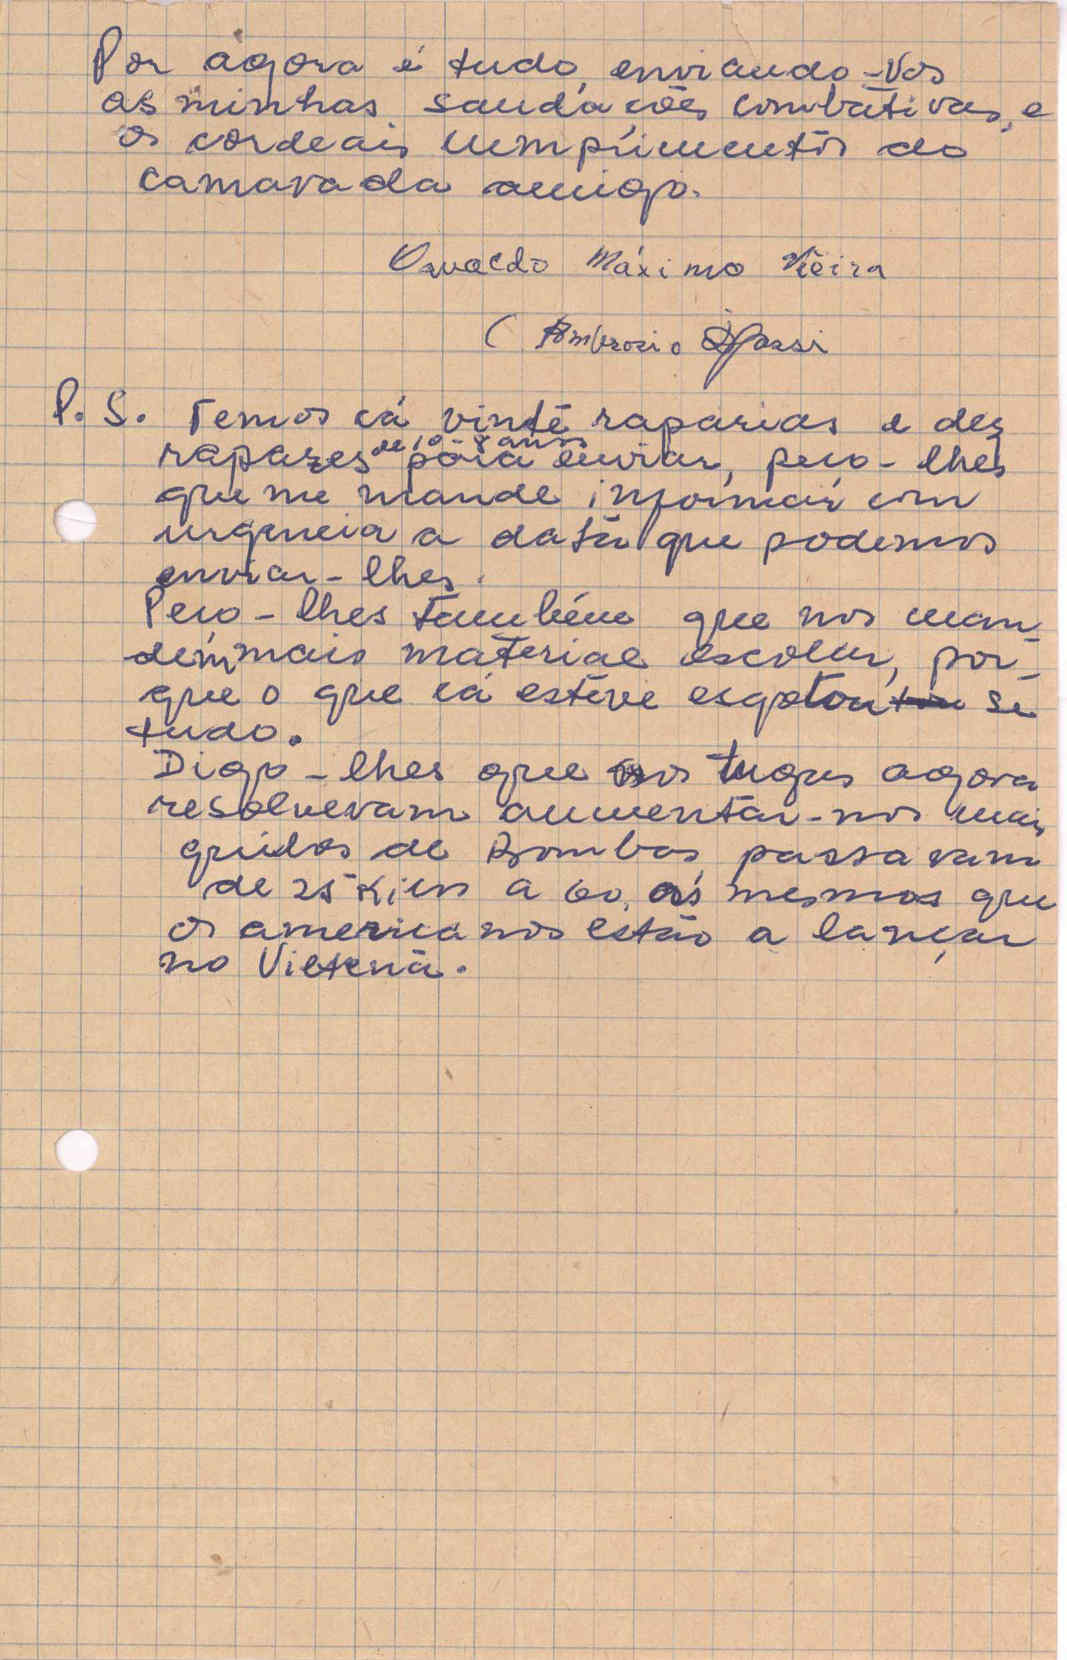 Por agora é tudo, enviando-vos
as minhas saudações combativas, e
os cordeais cumprimentos do
camarada amigo.
Osvaldo Máximo Vieira
( Ambrosio Djassi
P. S. Temos cá vinte raparias e dez
de 10-8 anos
rapazes para enviar, peço-lhes
que me mande informar com
urgencia a data que podemos
enviar-lhes.
Peço-lhes também que nos man-
dem mais material escolar, por-
que o que cá esteve esgotou se
tudo.
Digo-lhes que os tugas agora
resolveram aumentar-nos mais
de Bombas passavam
de 25 Kilos a 60, as mesmas que
os americanos estão a lançar
no Vietenã.